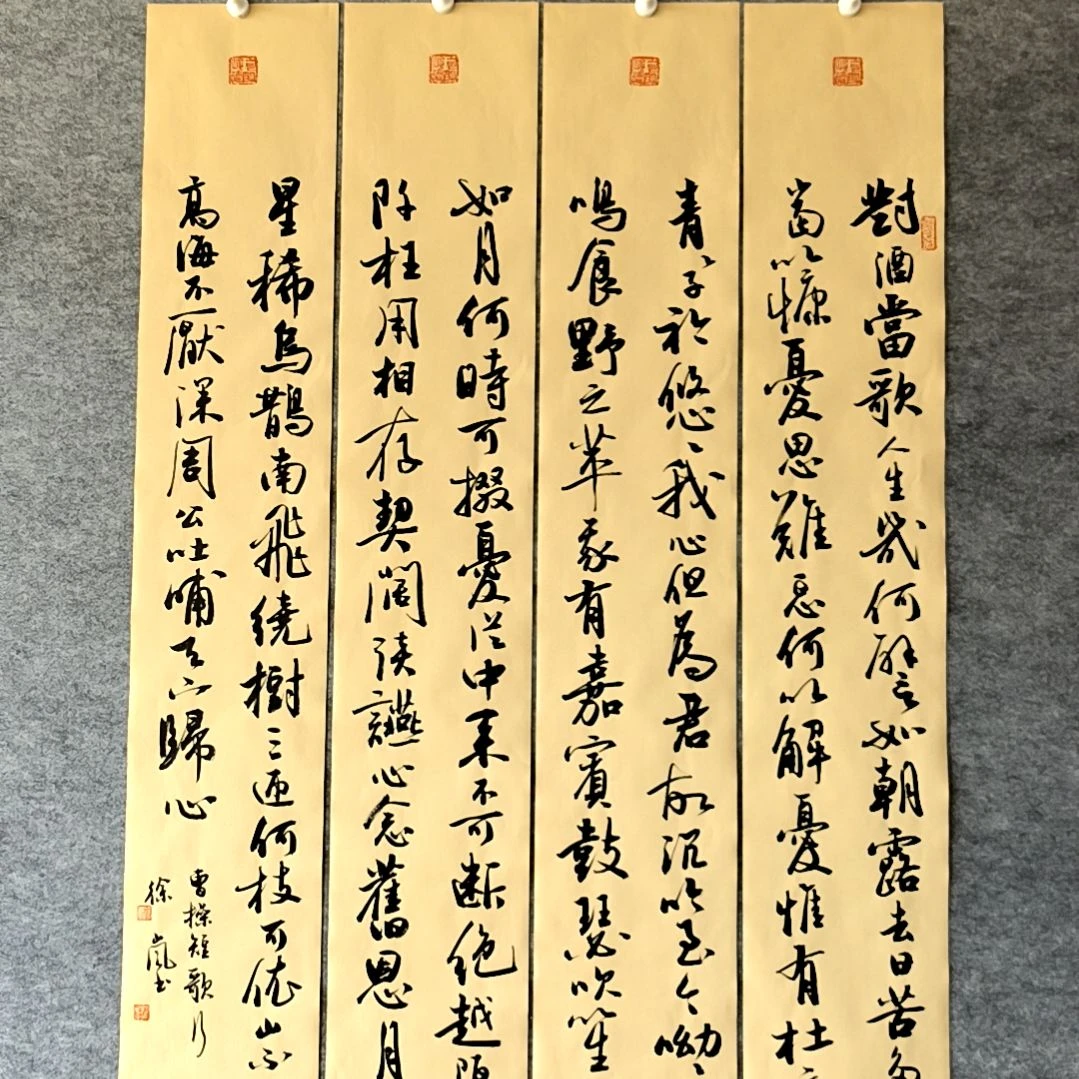 對酒當歌人生幾何譬如朝露去日苦多
當以慷憂思難忘何以解憂惟有杜
青〻子衿悠〻我心但為君故沉吟至今呦〻
鳴食野之苹我有嘉賓鼓瑟吹笙
如月何時可掇憂從中來不可斷絕越陌
阡枉用相存契闊談讌心念舊恩月
星稀烏鵲南飛繞樹三匝何枝可依山不
高海不厭深周公吐哺天下歸心
曹操短歌行
徐嵐書